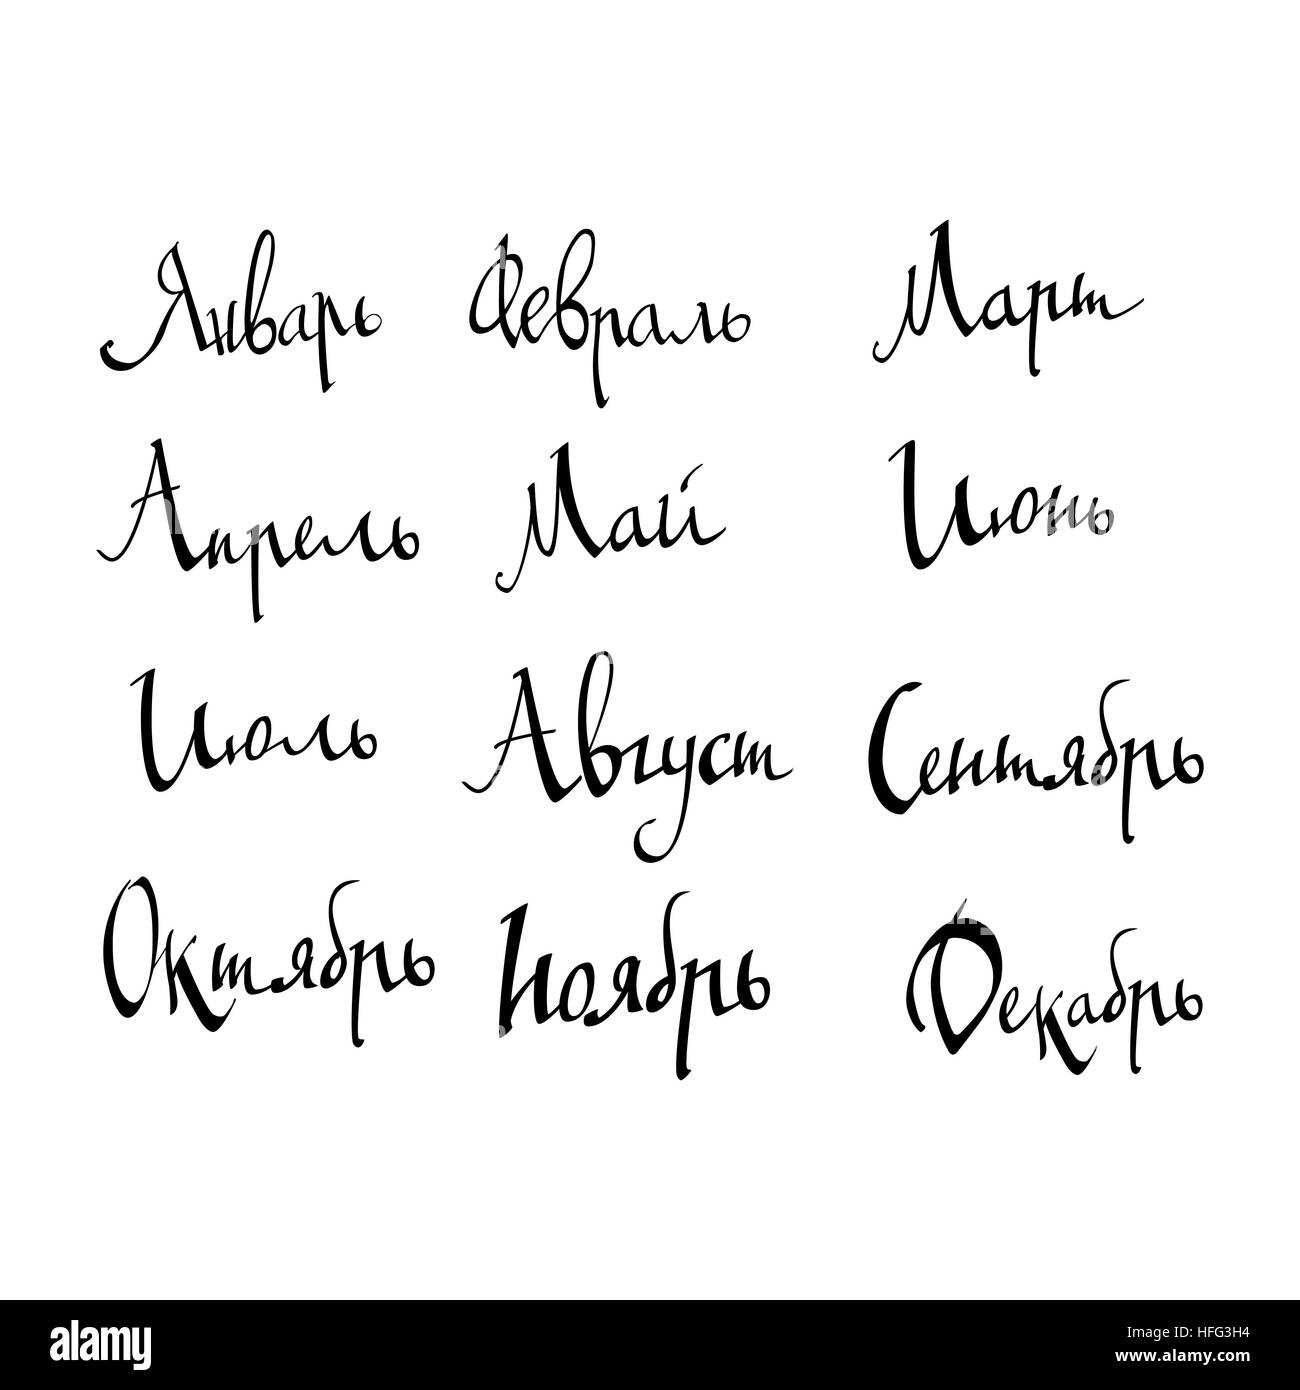 Январь Февраль Март
Апрель Май Июнь
Июль Август Сентябрь
Октябрь Ноябрь Декабрь
alamy stock photo
HFG3H4
www.alamy.com